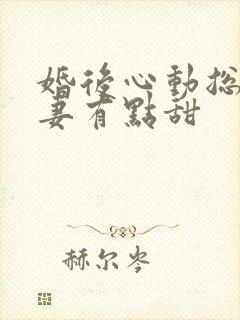 婚後心動总
妻有點甜
赫尔岑